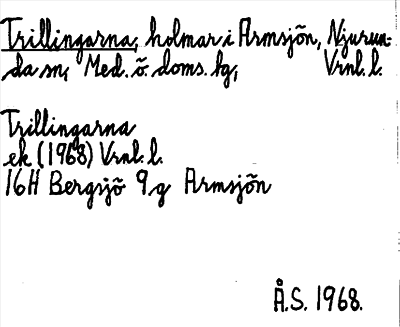 Trillingarna, holmar i Armsjön, Njurun-
da sn, Med. ö. doms. hg, Vrnl. l.
Trillingarna
ek (1968) Vrnl. l.
16H Bergsjö 9g Armsjön
Å.S. 1968.